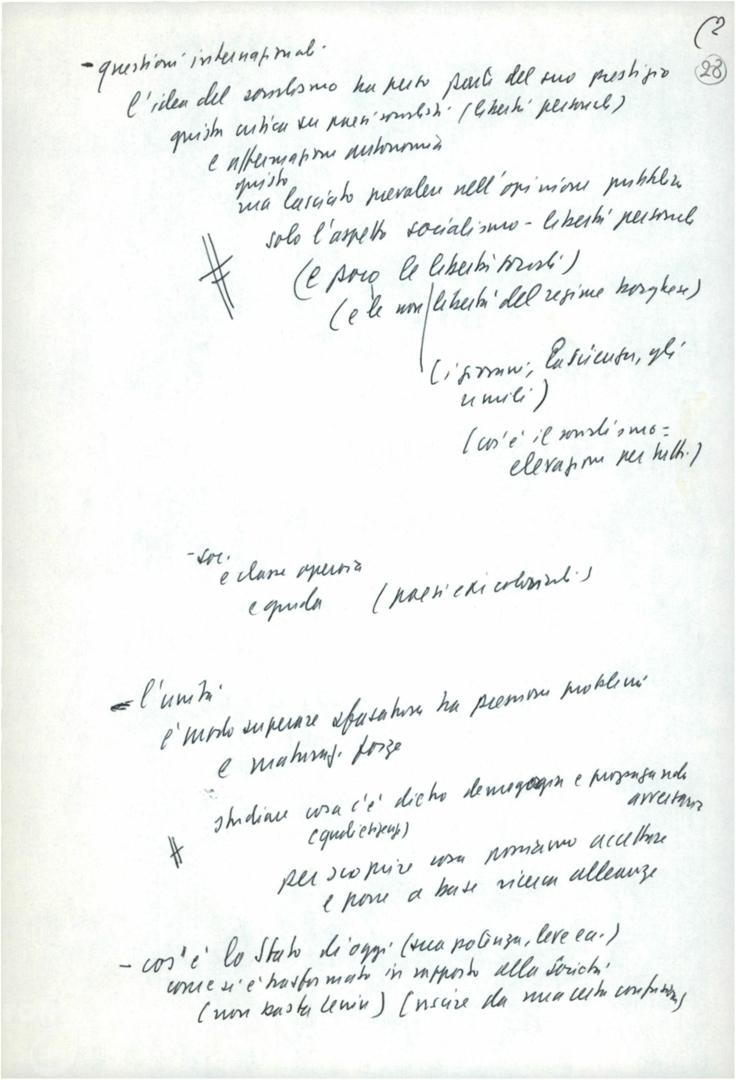 (2
28
- questioni internazionali.
l'idea del socialismo ha perso parte del suo prestigio
giusta critica su paesi socialisti (libertà personali)
e affermazione autonomia
giusto
ma lasciato prevalere nell'opinione pubblica
solo l'aspetto socialismo - libertà personali
(e poco le libertà sociali)
(e le non libertà del regime borghese)
(i giovani, la scienza, gli
umili)
(cos'è il socialismo =
elevazione per tutti.)
- soc.
e classe operaia
e guida (paesi ex coloniali)
- l'unità
è modo superare sfasatura tra pressione problemi
e maturaz. forze
studiare cosa c'è dietro demagogia e propaganda
avversaria
(quali esigenze)
per scoprire cosa possiamo accettare
e porre a base ricerca alleanze
- cos'è lo Stato di oggi (sua potenza, leve ec.)
come si è trasformato in rapporto alla società
(non basta Lenin) (uscire da una certa confusione)